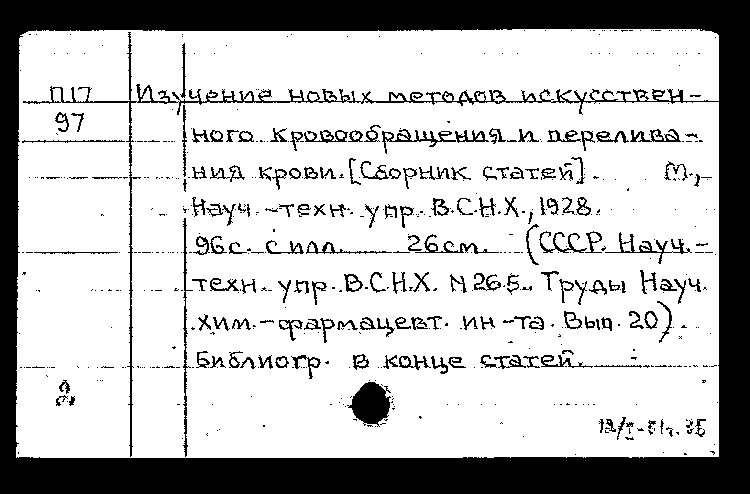 П17 Изучение новых методов искусствен-
97 ного кровообращения и перелива-
ния крови. [Сборник статей]. М.,-
Науч.-техн. упр. В.С.Н.Х., 1928.
96с. с илл. 26см. (СССР. Науч.-
техн. упр. В.С.Н.Х. N 265. Труды Науч.
хим.-фармацевт. ин-та. Вып. 20).
Библиогр. в конце статей.